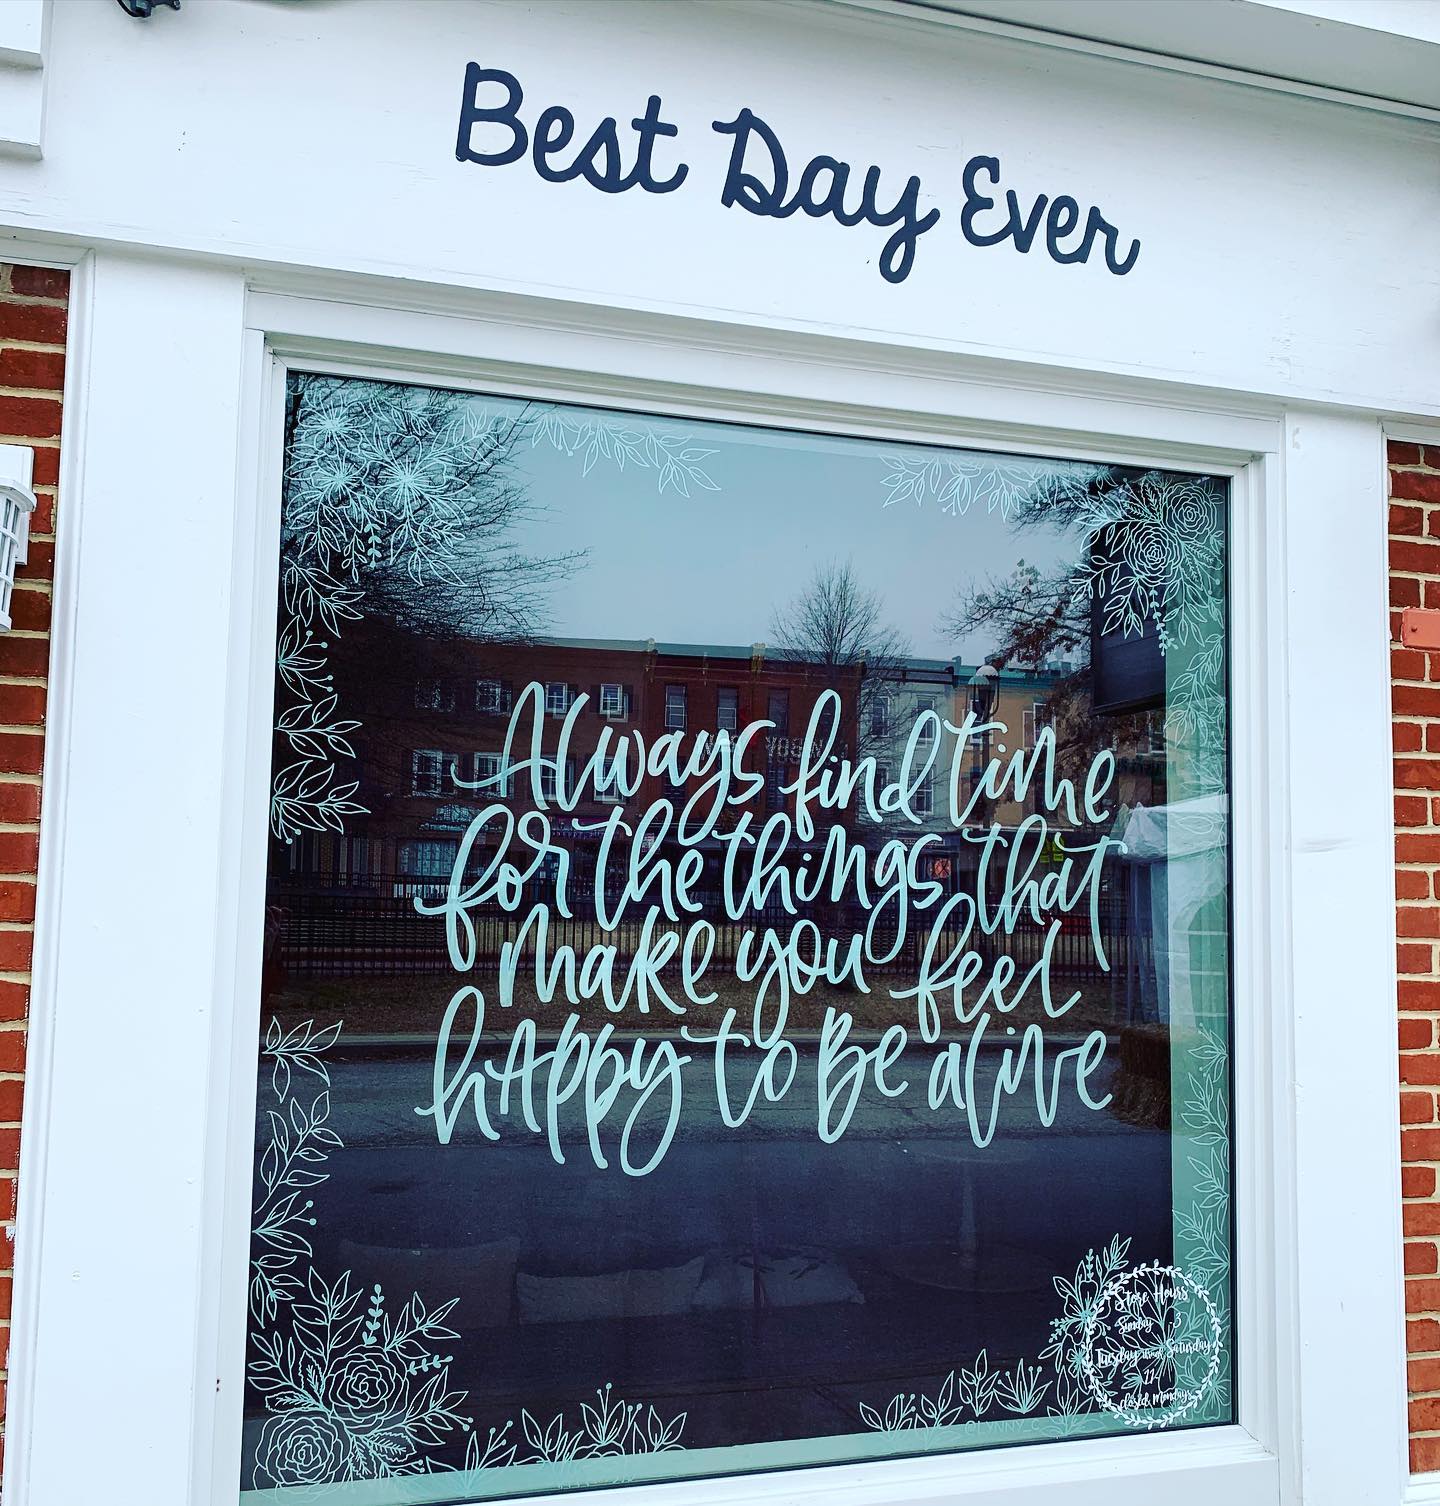 Best Day Ever
Always find time
for the things that
make you feel
happy to be alive
Store Hours
Sunday
Tuesday through Saturday
11-
closed Mondays